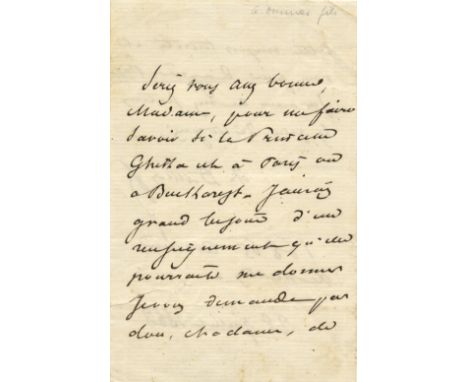 A. Dumas fils
Seriez vous assez bonne,
Madame, pour me faire
savoir si la Princesse
Ghika est à Paris ou
à Bucharest. J'aurais
grand besoin d'un
renseignement qu'elle
pourrait me donner
Je vous demande par
don, Madame, de